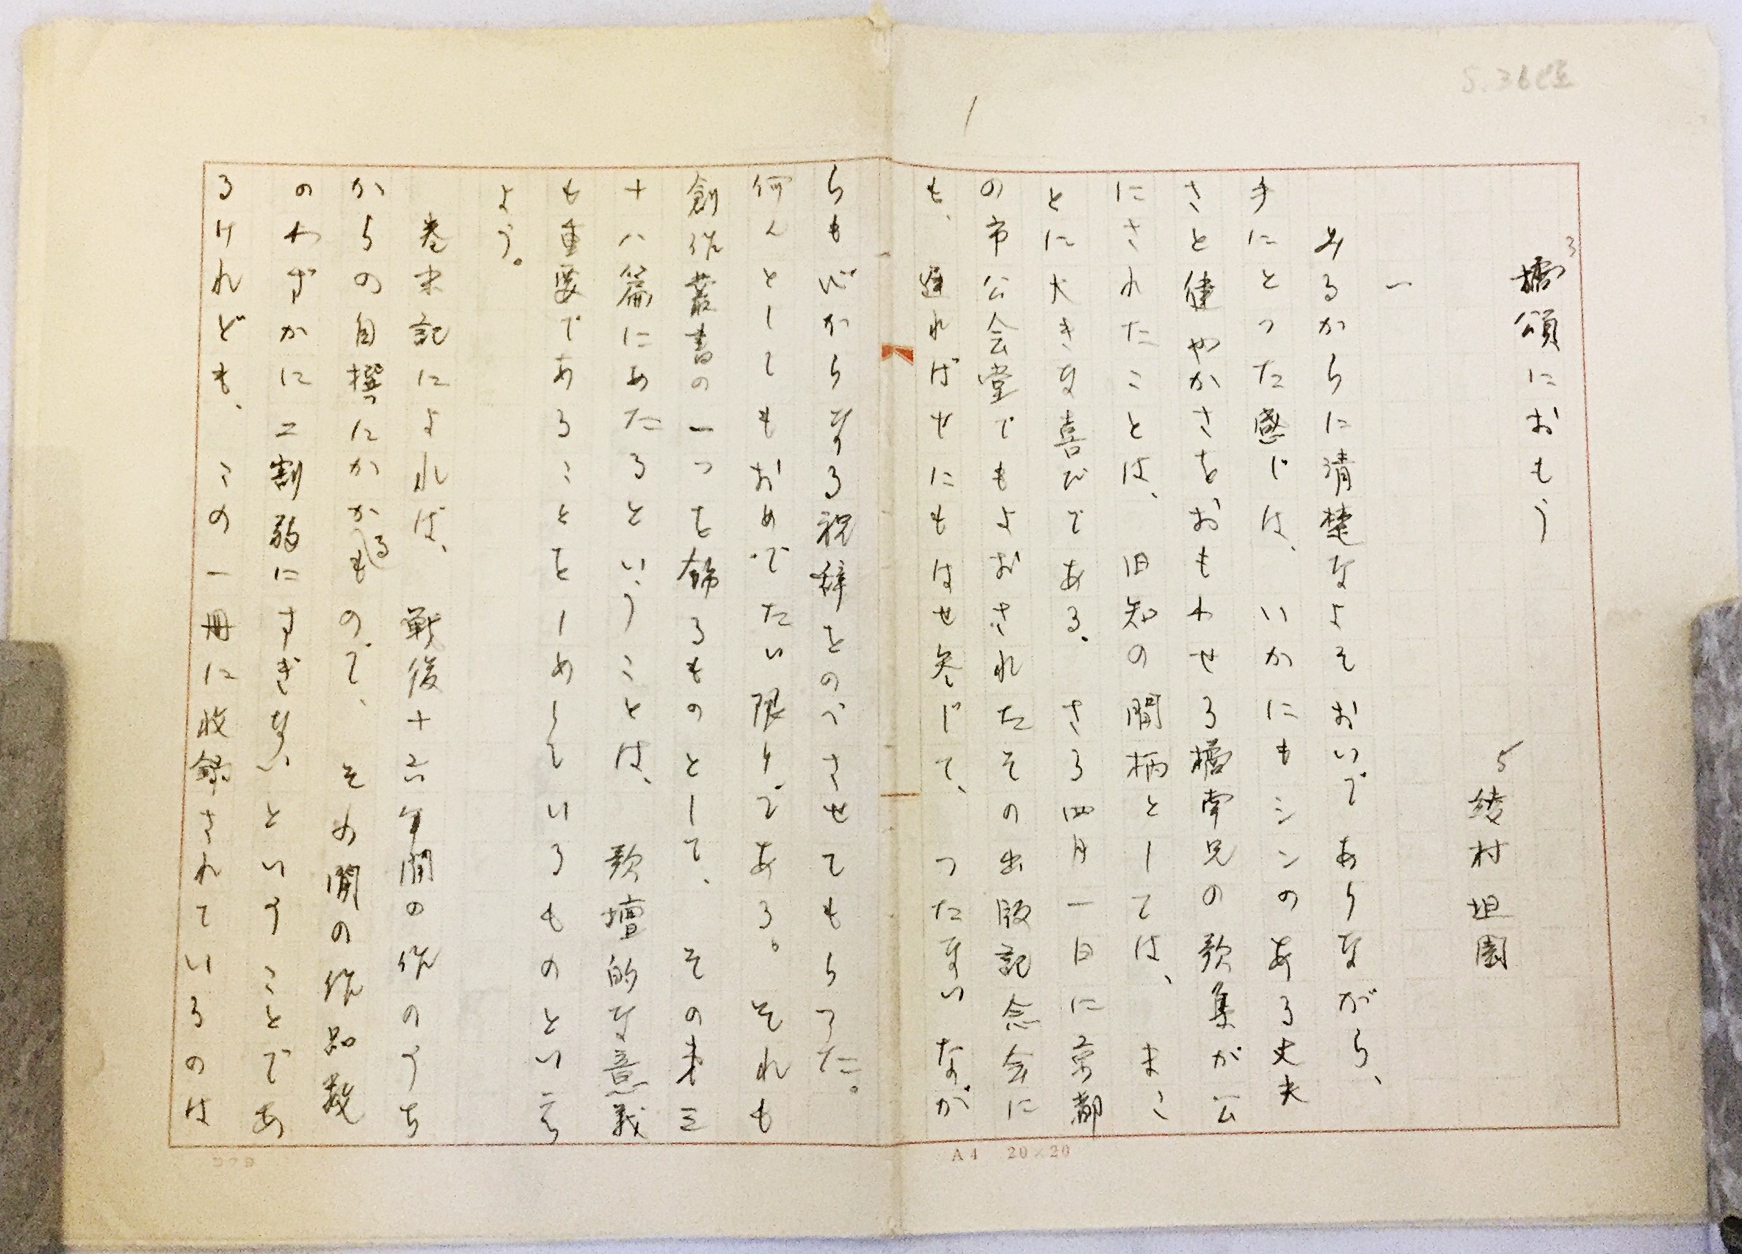 S.36
1
3
橘頌におもう
5
綾村坦園
一
みるからに清楚なよそおいでありながら、
手にとった感じは、いかにもシンのある丈夫
さと健やかさをおもわせる橘南兄の歌集が公
にされたことは、旧知の間柄としては、まこ
とに大きな喜びである。さる四月一日に京都
の市公会堂でもよおされたその出版記念会に
も、遅ればせにもはせ参じて、つたないなが
らも心からなる祝辞をのべさせてもらった。
何んとしてもおめでたい限りである。それも
創作叢書の一つを飾るものとして、その第三
十八篇にあたるということは、歌壇的な意義
も重要であることをしめしているものといえ
よう。
巻末記によれば、戦後十六年間の作のうち
からの自撰にかかるもので、その間の作品数
のわずかに二割弱にすぎないということであ
るけれども、この一冊に收録されているのは
コクヨ
A4 20×20